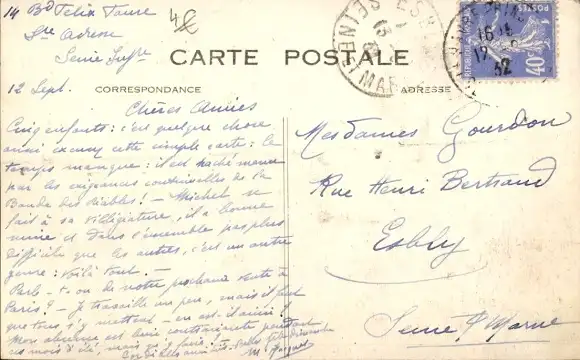 14 Bd Felix Faure
Ste Adresse
Seine Infre
4€
CARTE POSTALE
12 Sept.
CORRESPONDANCE
ADRESSE
Chères Amies
Cinq enfants : c'est quelque chose
aussi excusez cette simple carte : le
temps manque : il est haché menu
par les exigences continuelles de la
Bande des Diables ! — Michel se
fait à sa villégiature, il a bonne
mine et dans l'ensemble pas plus
difficile que les autres, c'est un autre
genre : voilà tout. —
Parle-t-on de notre prochaine visite à
Paris ? — Je travaille un peu, mais il faut
que tous s'y mettent
Mon
Mesdames Gourdon
Rue Henri Bertrand
Esbly
Seine & Marne
SEINE ET MAR
16
17
32
REPUBLIQUE
40c